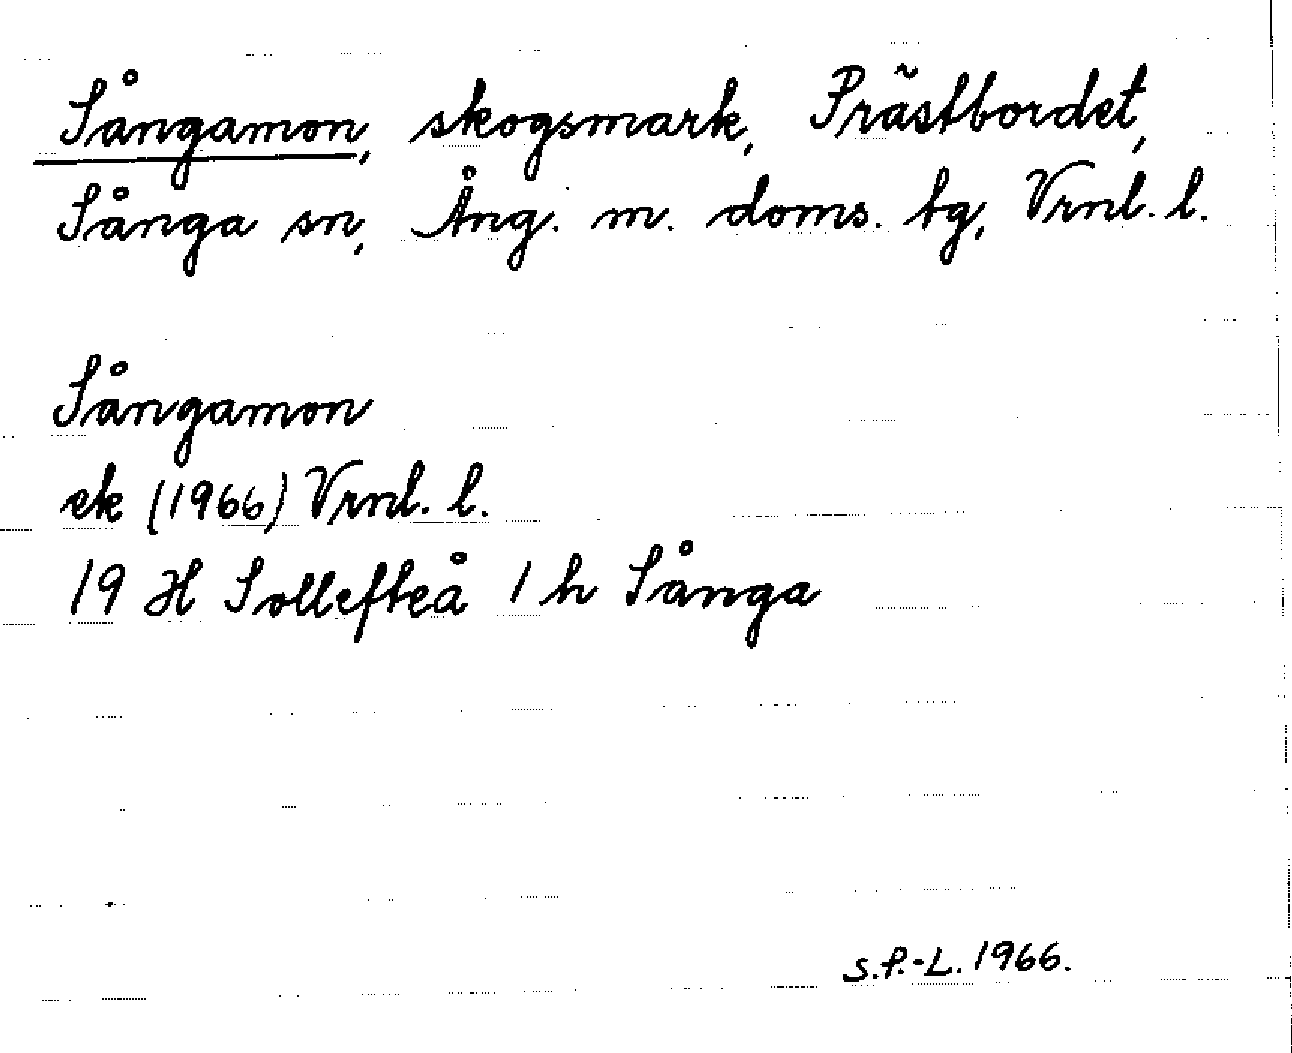 Sångamon, skogsmark, Prästbordet,
Sånga sn, Ång. m. doms. tg, Vrnl. l.
Sångamon
ek (1966) Vrnl. l.
19 H Sollefteå 1 h Sånga
S.P.-L. 1966.